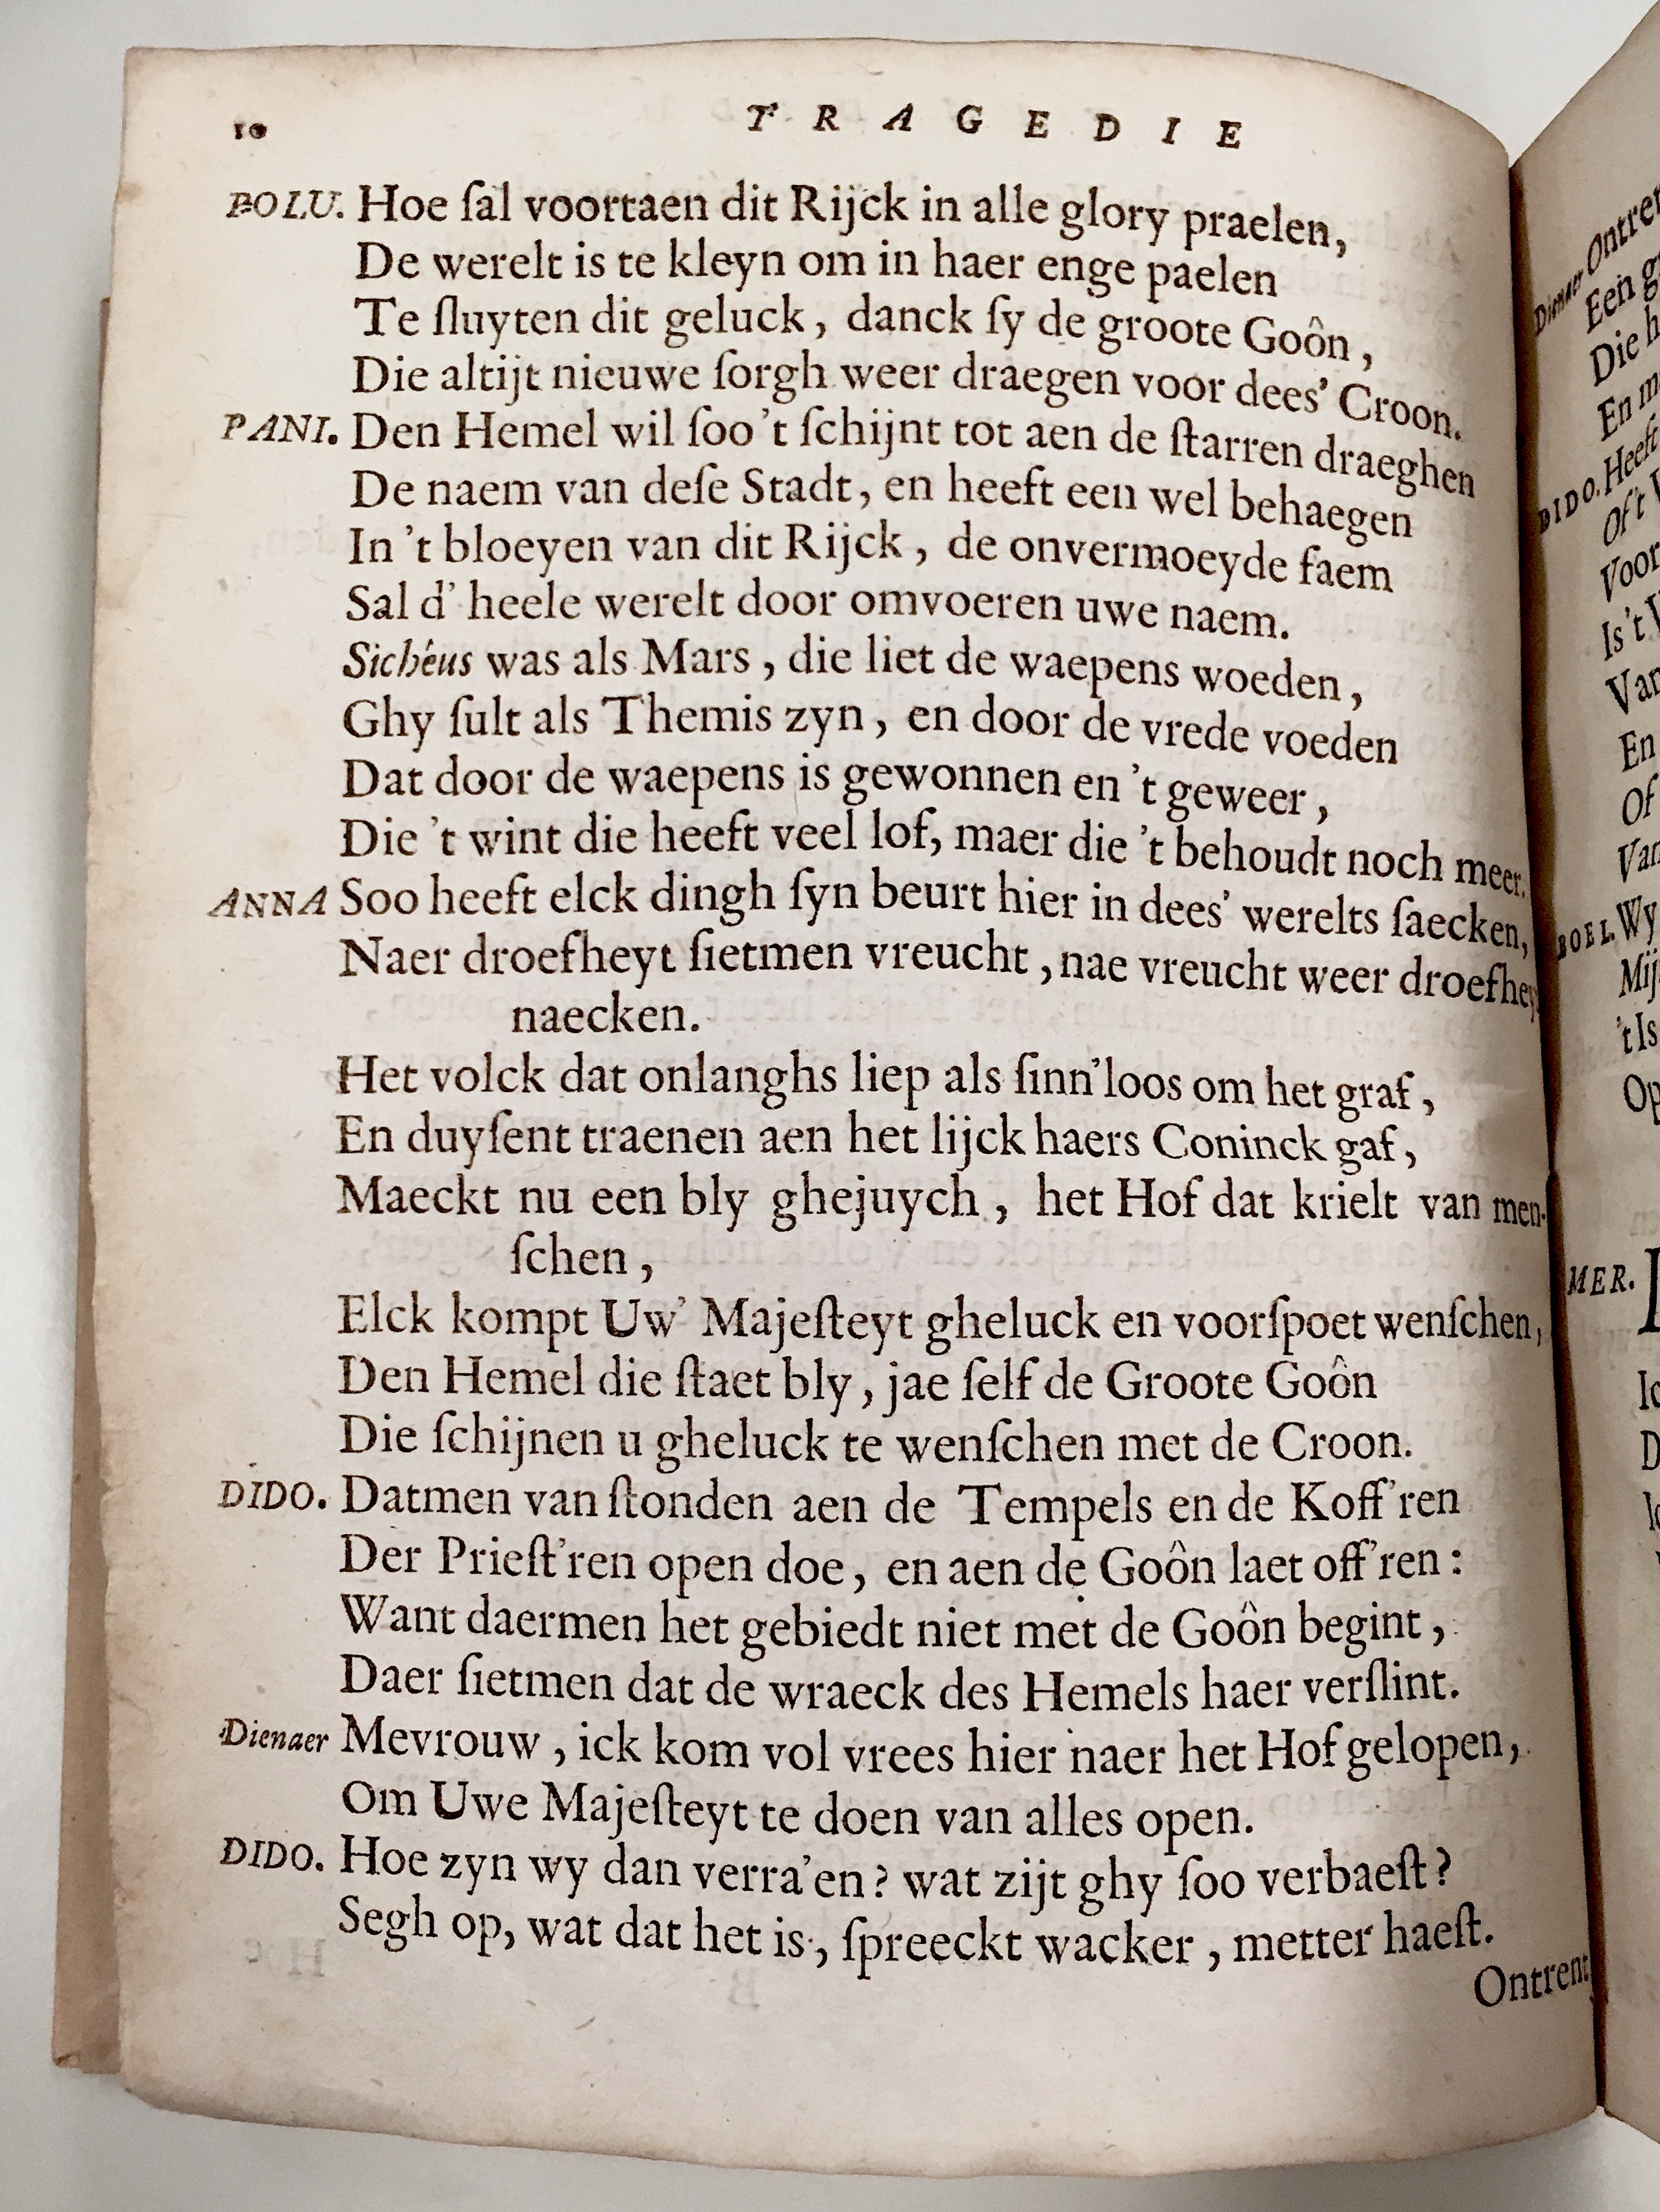 10 TRAGEDIE
POLU. Hoe ſal voortaen dit Rijck in alle glory praelen,
De werelt is te kleyn om in haer enge paelen
Te ſluyten dit geluck, danck ſy de groote Goôn,
Die altijt nieuwe ſorgh weer draegen voor dees' Croon.
PANI. Den Hemel wil ſoo 't ſchijnt tot aen de ſtarren draeghen
De naem van deſe Stadt, en heeft een wel behaegen
In 't bloeyen van dit Rijck, de onvermoeyde faem
Sal d' heele werelt door omvoeren uwe naem.
Sichêus was als Mars, die liet de waepens woeden,
Ghy ſult als Themis zyn, en door de vrede voeden
Dat door de waepens is gewonnen en 't geweer,
Die 't wint die heeft veel lof, maer die 't behoudt noch meer.
ANNA Soo heeft elck dingh ſyn beurt hier in dees' werelts ſaecken,
Naer droefheyt ſietmen vreucht, nae vreucht weer droefhey
naecken.
Het volck dat onlanghs liep als ſinn'loos om het graf,
En duyſent traenen aen het lijck haers Coninck gaf,
Maeckt nu een bly ghejuych, het Hof dat krielt van men-
ſchen,
Elck kompt Uw' Majeſteyt gheluck en voorſpoet wenſchen,
Den Hemel die ſtaet bly, jae ſelf de Groote Goôn
Die ſchijnen u gheluck te wenſchen met de Croon.
DIDO. Datmen van ſtonden aen de Tempels en de Koff'ren
Der Prieſt'ren open doe, en aen de Goôn laet off'ren:
Want daermen het gebiedt niet met de Goôn begint,
Daer ſietmen dat de wraeck des Hemels haer verſlint.
Dienaer Mevrouw, ick kom vol vrees hier naer het Hof gelopen,
Om Uwe Majeſteyt te doen van alles open.
DIDO. Hoe zyn wy dan verra'en? wat zijt ghy ſoo verbaeſt?
Segh op, wat dat het is, ſpreeckt wacker, metter haeſt.
Ontrent
Dienaer
Een
Die
En
DIDO.
Of't
Voor
Is't
Van
En
Of
Van
BOEL. Wy
't Is
Op
MER.